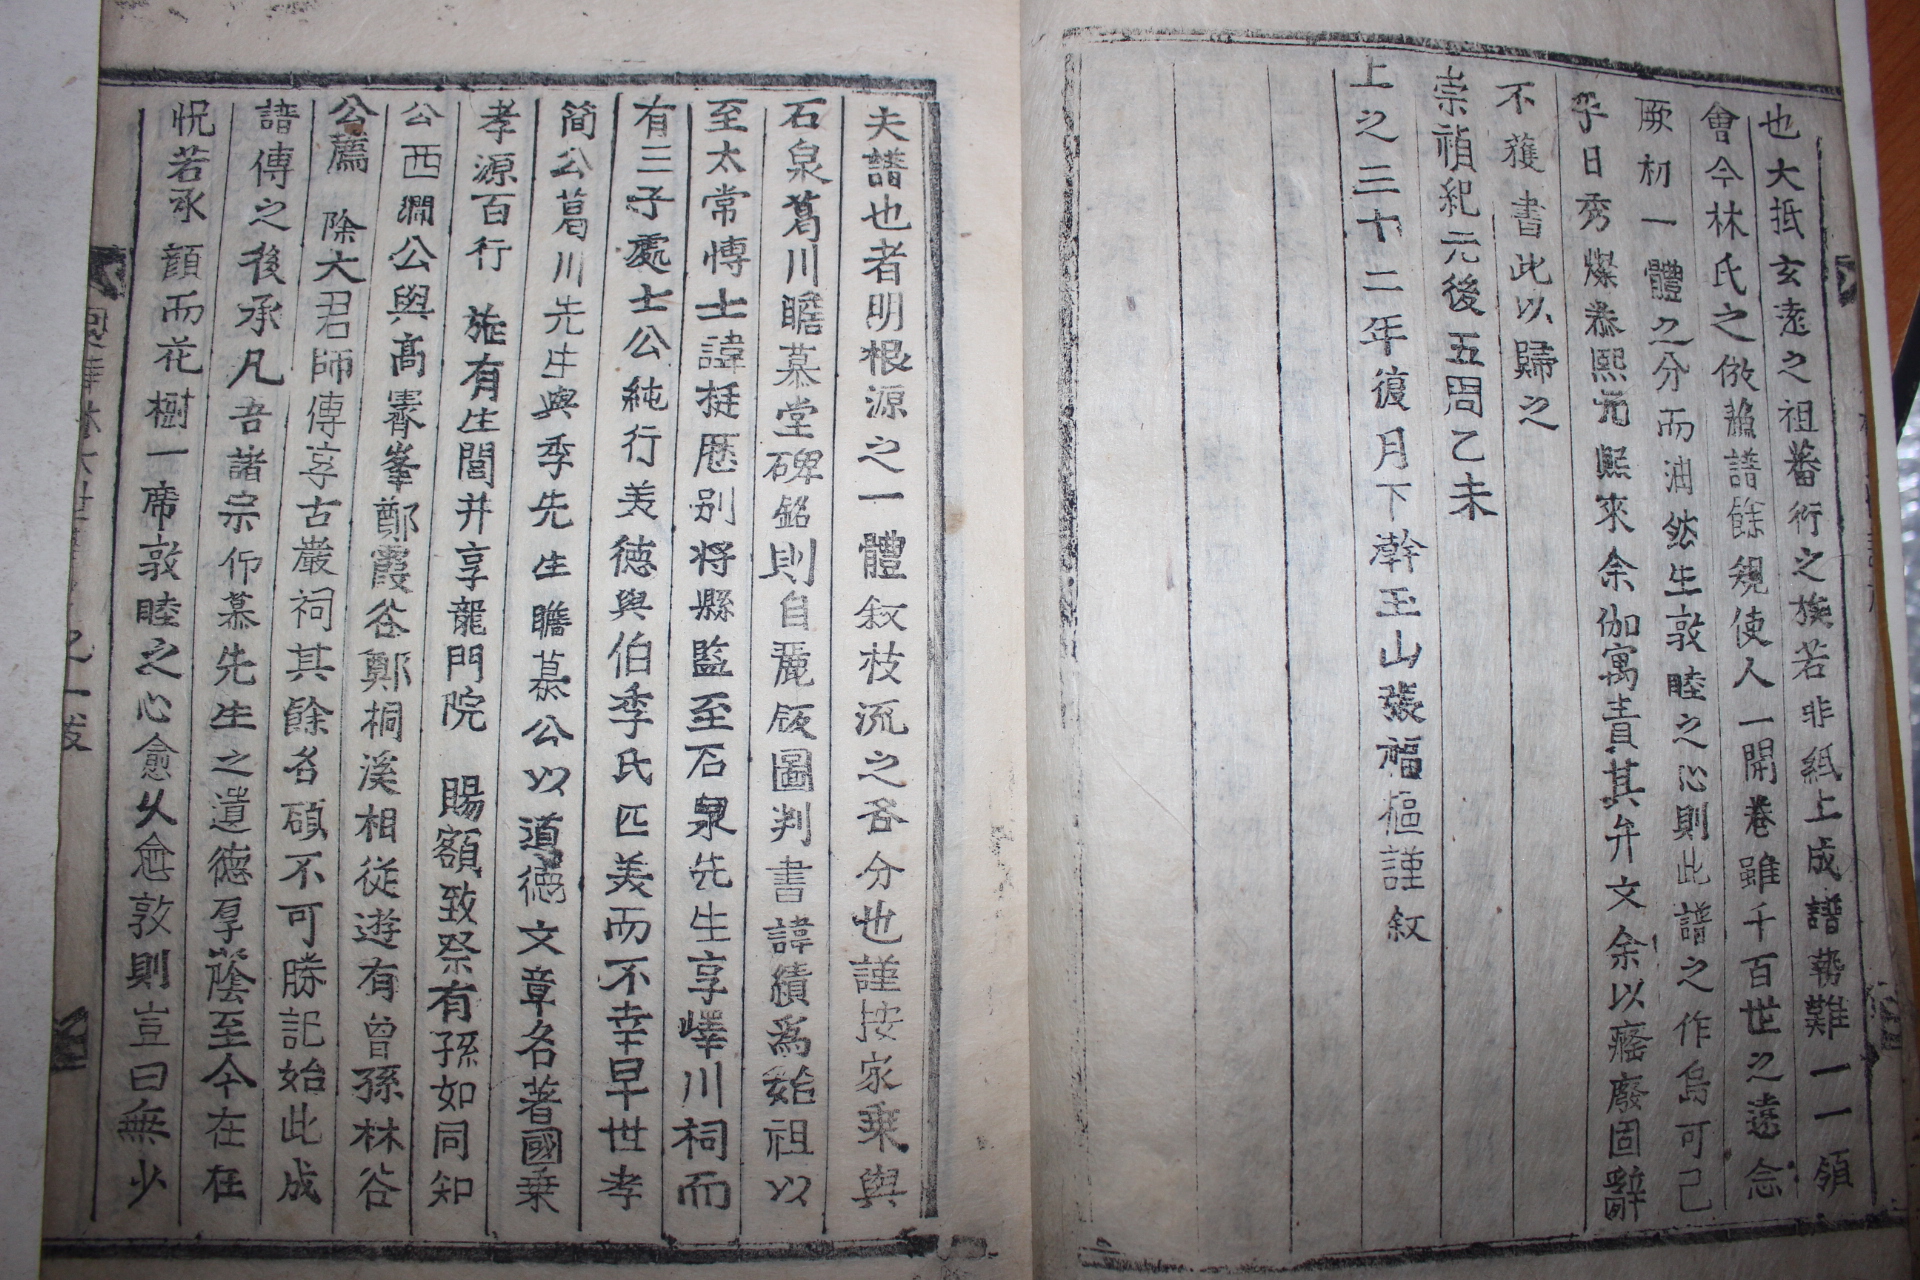 也大抵玄遠之祖蕃衍之族若非紙上成譜勢難一一領
會今林氏之倣蘓譜餘規使人一開卷雖千百世之遠念
厥初一體之分而油然生敦睦之心則此譜之作烏可已
乎日秀爕泰熙元熙來余伽寓責其弁文余以癃廢固辭
不獲書此以歸之
崇禎紀元後五周乙未
上之三十二年復月下澣玉山張福樞謹敘
夫譜也者明根源之一體敘枝流之各分也謹按家乗與
石泉葛川瞻慕堂碑銘則自麗版圖判書諱績爲始祖以
至太常博士諱挺歴别将縣監至石泉先生享嶧川祠而
有三子處士公純行美德與伯季氏匹美而不幸早世孝
簡公葛川先生與季先生瞻慕公以道德文章名著國乗
孝源百行 㫌有生閭并享龍門院 賜額致祭有孫如同知
公西澗公與高霽峯鄭霞谷鄭桐溪相從遊有曾孫林谷
公薦 除大君師傅享古巖祠其餘名碩不可勝記始此成
譜傳之後承凡吾諸宗仰慕先生之遺德厚蔭至今在在
怳若承顔而花樹一席敦睦之心愈久愈敦則豈曰無少